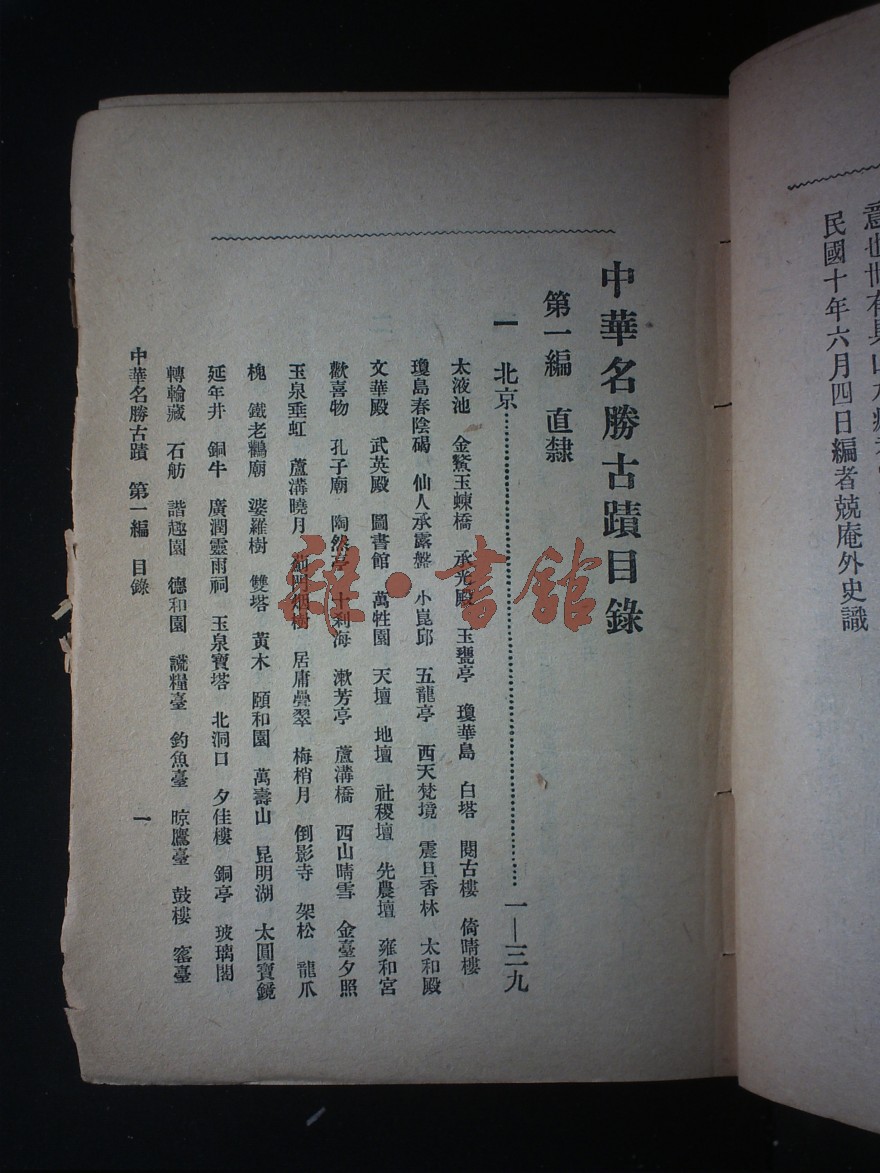 民國十年六月四日編者兢庵外史識
中華名勝古蹟目錄
第一編 直隸
一 北京……一—三九
太液池 金鰲玉蝀橋 承光殿 玉甕亭 瓊華島 白塔 閱古樓 倚晴樓
瓊島春陰碣 仙人承露盤 小崑邱 五龍亭 西天梵境 震旦香林 太和殿
文華殿 武英殿 圖書館 萬牲園 天壇 地壇 社稷壇 先農壇 雍和宮
歡喜物 孔子廟 陶然亭 十刹海 漱芳亭 蘆溝橋 西山晴雪 金臺夕照
玉泉垂虹 蘆溝曉月 薊門烟樹 居庸疊翠 梅梢月 倒影寺 架松 龍爪
槐 鐵老鸛廟 娑羅樹 雙塔 黃木 頤和園 萬壽山 昆明湖 太圓寶鏡
延年井 銅牛 廣潤靈雨祠 玉泉寶塔 北洞口 夕佳樓 銅亭 玻璃閣
轉輪藏 石舫 諧趣園 德和園 謊糧臺 釣魚臺 晾鷹臺 鼓樓 窰臺
中華名勝古蹟 第一編 目錄
一
雜·書館